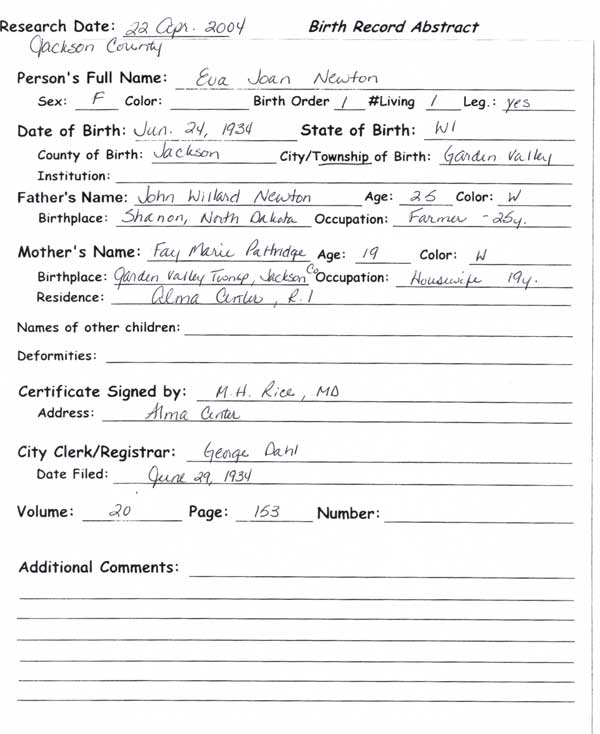 Research Date: 22 Apr. 2004 Birth Record Abstract
Jackson County
Person's Full Name: Eva Joan Newton
Sex: F Color: Birth Order 1 #Living 1 Leg.: yes
Date of Birth: Jun. 24, 1934 State of Birth: WI
County of Birth: Jackson City/Township of Birth: Garden Valley
Institution:
Father's Name: John Willard Newton Age: 25 Color: W
Birthplace: Shanon, North Dakota Occupation: Farmer - 25y.
Mother's Name: Fay Marie Pattridge Age: 19 Color: W
Birthplace: Garden Valley Twnsp, Jackson Co Occupation: Housewife 19y.
Residence: Alma Center, R.1
Names of other children:
Deformities:
Certificate Signed by: M.H. Rice, MD
Address: Alma Center
City Clerk/Registrar: George Dahl
Date Filed: June 29, 1934
Volume: 20 Page: 153 Number:
Additional Comments: